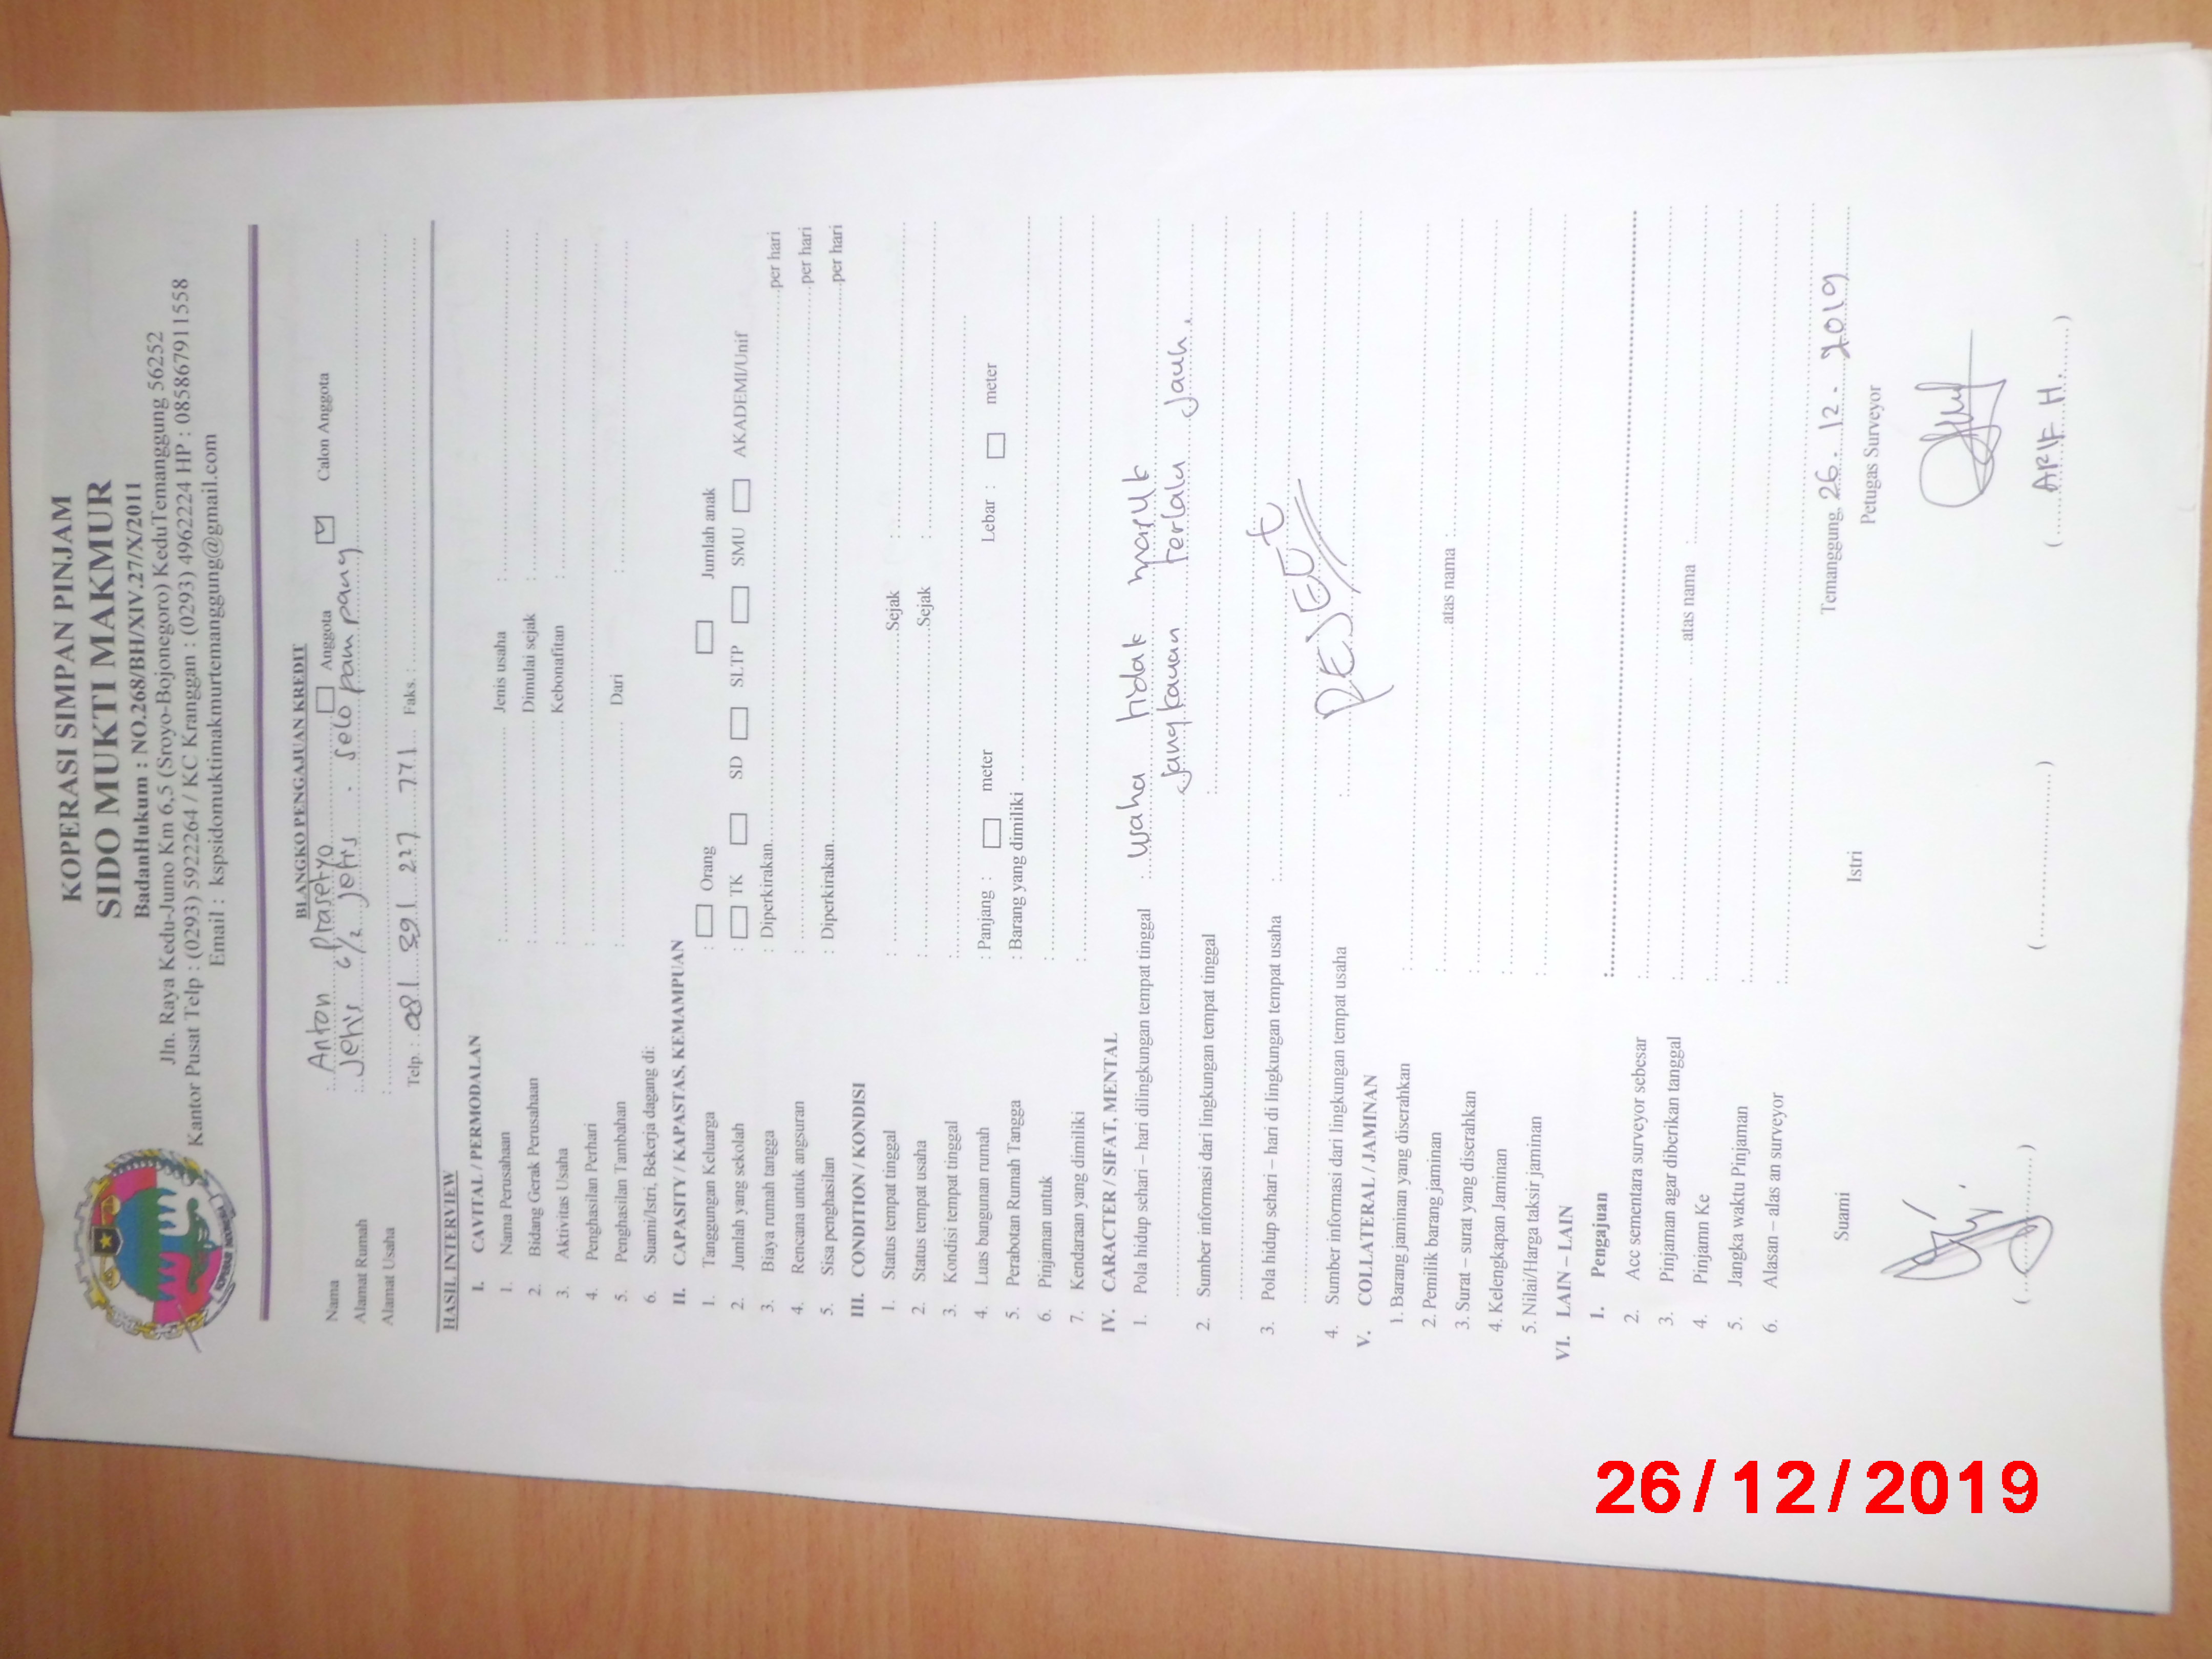 KOPERASI SIMPAN PINJAM
SIDO MUKTI MAKMUR
BadanHukum : NO.268/BH/XIV.27/X/2011
Jln. Raya Kedu-Jumo Km 6,5 (Sroyo-Bojonegoro) KeduTemanggung 56252
Kantor Pusat Telp : (0293) 5922264 / KC Kranggan : (0293) 4962224 HP : 085867911558
Email : kspsidomuktimakmurtemanggung@gmail.com
BLANGKO PENGAJUAN KREDIT
Nama : Anton Prasetyo Anggota Calon Anggota
Alamat Rumah : Jetis Jetis . Selopampang
Alamat Usaha :
Telp. : 081 391 227 771 Faks. :
HASIL INTERVIEW
I. CAVITAL / PERMODALAN
1. Nama Perusahaan : Jenis usaha :
2. Bidang Gerak Perusahaan : Dimulai sejak :
3. Aktivitas Usaha : Kebonafitan :
4. Penghasilan Perhari :
5. Penghasilan Tambahan : Dari :
6. Suami/Istri, Bekerja dagang di:
II. CAPASITY / KAPASTAS, KEMAMPUAN
1. Tanggungan Keluarga : Orang Jumlah anak
2. Jumlah yang sekolah : TK SD SLTP SMU AKADEMI/Unif
3. Biaya rumah tangga : Diperkirakan per hari
4. Rencana untuk angsuran : per hari
5. Sisa penghasilan : Diperkirakan per hari
III. CONDITION / KONDISI
1. Status tempat tinggal : Sejak :
2. Status tempat usaha : Sejak :
3. Kondisi tempat tinggal :
4. Luas bangunan rumah : Panjang : meter Lebar : meter
5. Perabotan Rumah Tangga : Barang yang dimiliki
6. Pinjaman untuk :
7. Kendaraan yang dimiliki :
IV. CARACTER / SIFAT, MENTAL
1. Pola hidup sehari – hari dilingkungan tempat tinggal : usaha tidak masuk
jangkauan terlalu jauh.
2. Sumber informasi dari lingkungan tempat tinggal :
3. Pola hidup sehari – hari di lingkungan tempat usaha :
REJECT
4. Sumber informasi dari lingkungan tempat usaha :
V. COLLATERAL / JAMINAN
1. Barang jaminan yang diserahkan :
2. Pemilik barang jaminan : atas nama :
3. Surat – surat yang diserahkan :
4. Kelengkapan Jaminan :
5. Nilai/Harga taksir jaminan :
VI. LAIN – LAIN
1. Pengajuan :
2. Acc sementara surveyor sebesar :
3. Pinjaman agar diberikan tanggal : atas nama :
4. Pinjamn Ke :
5. Jangka waktu Pinjaman :
6. Alasan – alas an surveyor :
Temanggung, 26 . 12 . 2019
Suami Istri Petugas Surveyor
( ) ( ) ( ARIF H. )
26/12/2019